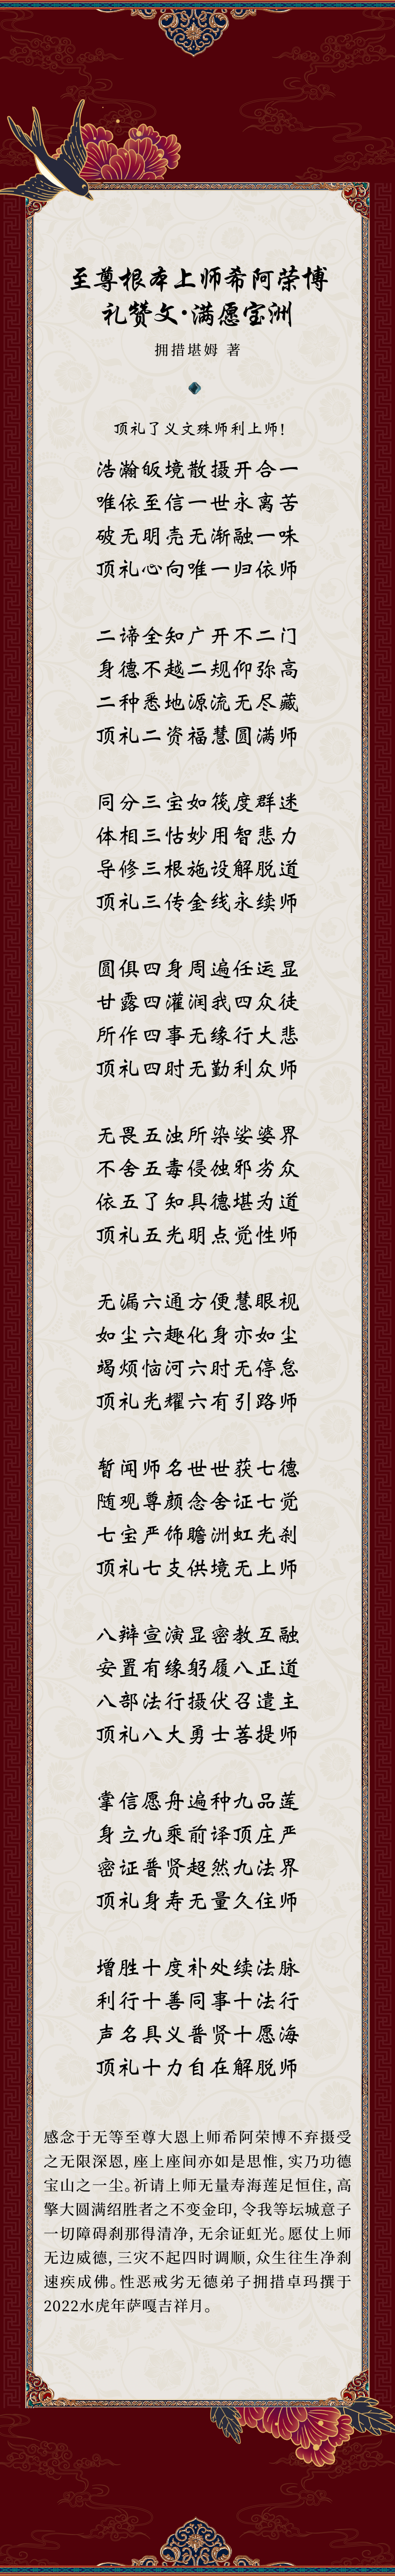 至尊根本上师希阿荣博
礼赞文·满愿宝洲
拥措堪姆 著
顶礼了义文殊师利上师!
浩瀚皈境散摄开合一
唯依至信一世永离苦
破无明亮无渐融一味
顶礼心向唯一归依师
二谛全知广开不二门
身德不越二规仰弥高
二种悉地源流无尽藏
顶礼二资福慧圆满师
同分三宝如筏度群迷
体相三怙妙用智悲力
导修三根施设解脱道
顶礼三传金线永续师
圆俱四身周遍任运显
甘露四灌润我四众徒
所作四事无缘行大悲
顶礼四时无勤利众师
无畏五浊所染娑婆界
不舍五毒侵蚀邪劣众
依五了知具德堪为道
顶礼五光明点觉性师
无漏六通方便慧眼视
如尘六趣化身亦如尘
竭烦恼河六时无停怠
顶礼光耀六有引路师
暂闻师名世世获七德
随观尊颜念舍证七觉
七宝严饰瞻洲虹光刹
顶礼七支供境无上师
八辩宣演显密教互融
安置有缘躬履八正道
八部法行摄伏召遣主
顶礼八大勇士菩提师
掌信愿舟遍种九品莲
身立九乘前译顶庄严
密证普贤超然九法界
顶礼身寿无量久住师
增胜十度补处续法脉
利行十善同事十法行
声名具义普贤十愿海
顶礼十力自在解脱师
感念于无等至尊大恩上师希阿荣博不弃摄受
之无限深恩，座上座间亦如是思惟，实乃功德
宝山之一尘。祈请上师无量寿海莲足恒住，高
擎大圆满绍胜者之不变金印，令我等坛城意子
一切障碍刹那得清净，无余证虹光。愿仗上师
无边威德，三灾不起四时调顺，众生往生净刹
速疾成佛。性恶戒劣无德弟子拥措卓玛撰于
2022水虎年萨嘎吉祥月。